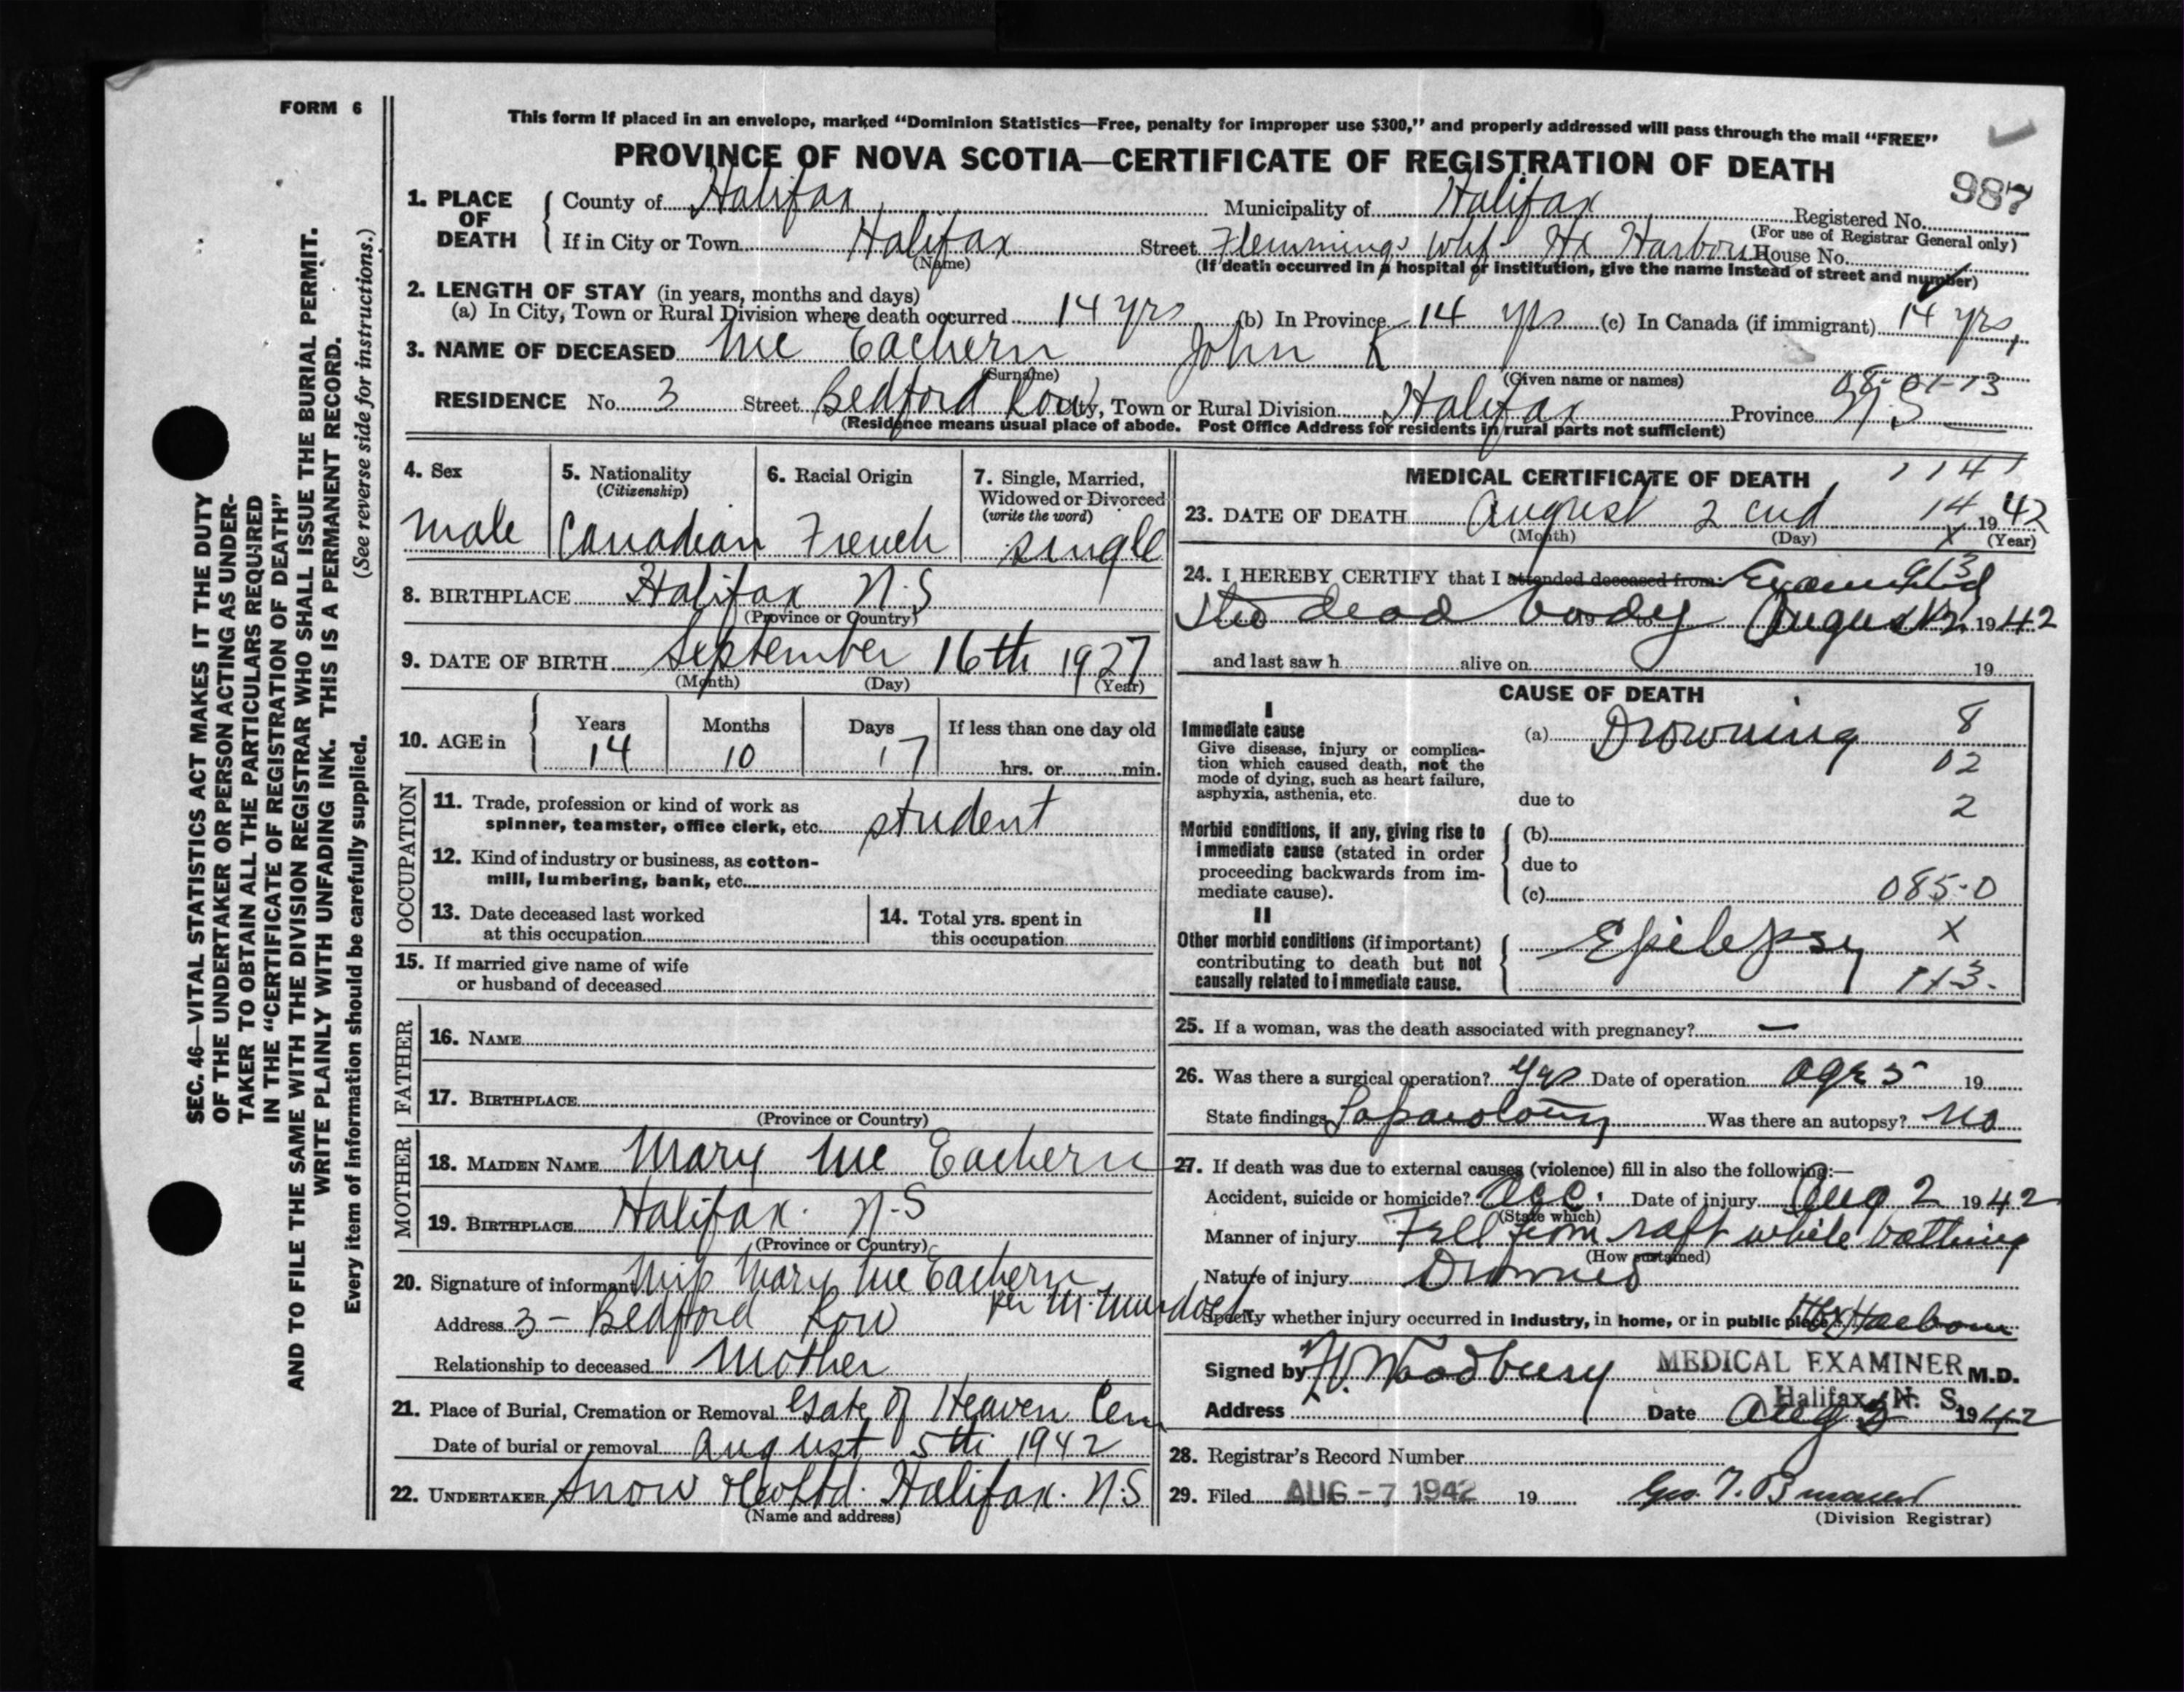 FORM 6
This form if placed in an envelope, marked "Dominion Statistics—Free, penalty for improper use $300," and properly addressed will pass through the mail "FREE"
PROVINCE OF NOVA SCOTIA—CERTIFICATE OF REGISTRATION OF DEATH
987
1. PLACE OF DEATH
County of Halifax Municipality of Halifax Registered No.
(For use of Registrar General only)
If in City or Town Halifax Street Flemmings Whf. Hx Harbour House No.
(Name) (If death occurred in a hospital or institution, give the name instead of street and number)
2. LENGTH OF STAY (in years, months and days)
(a) In City, Town or Rural Division where death occurred 14 yrs (b) In Province 14 yrs (c) In Canada (if immigrant) 14 yrs,
3. NAME OF DECEASED Mc Eachern John K
(Surname) (Given name or names)
08-01-13
RESIDENCE No. 3 Street Bedford Row City, Town or Rural Division Halifax Province N.S
(Residence means usual place of abode. Post Office Address for residents in rural parts not sufficient)
4. Sex
male
5. Nationality
(Citizenship)
Canadian
6. Racial Origin
French
7. Single, Married,
Widowed or Divorced
(write the word)
single
8. BIRTHPLACE Halifax N.S
(Province or Country)
9. DATE OF BIRTH September 16th 1927
(Month) (Day) (Year)
10. AGE in
Years Months Days If less than one day old
14 10 17 hrs. or min.
OCCUPATION
11. Trade, profession or kind of work as
spinner, teamster, office clerk, etc. student
12. Kind of industry or business, as cotton-
mill, lumbering, bank, etc.
13. Date deceased last worked
at this occupation
14. Total yrs. spent in
this occupation
15. If married give name of wife
or husband of deceased
FATHER
16. NAME
17. BIRTHPLACE
(Province or Country)
MOTHER
18. MAIDEN NAME Mary Mc Eachern
19. BIRTHPLACE Halifax. N-S
(Province or Country)
20. Signature of informant Miss Mary Mc Eachern
per M. Murdoch
Address 3 - Bedford Row
Relationship to deceased Mother
21. Place of Burial, Cremation or Removal Gate of Heaven Cem
Date of burial or removal August 5th 1942
22. UNDERTAKER Snow & Co Ltd. Halifax. N.S
(Name and address)
MEDICAL CERTIFICATE OF DEATH
1141
23. DATE OF DEATH August 2 cnd 14 1942
(Month) (Day) X (Year)
24. I HEREBY CERTIFY that I attended deceased from: Examined
913
the dead body 19 to August 2, 1942
and last saw h alive on 19
CAUSE OF DEATH
I
Immediate cause
Give disease, injury or complica-
tion which caused death, not the
mode of dying, such as heart failure,
asphyxia, asthenia, etc.
(a) Drowning 8
02
due to 2
Morbid conditions, if any, giving rise to
immediate cause (stated in order
proceeding backwards from im-
mediate cause).
(b)
due to
(c) 085-0
II
Other morbid conditions (if important)
contributing to death but not
causally related to immediate cause.
Epilepsy X
25. If a woman, was the death associated with pregnancy? —
26. Was there a surgical operation? Yes Date of operation age 5 19
State findings Laparotomy Was there an autopsy? No
27. If death was due to external causes (violence) fill in also the following:—
Accident, suicide or homicide? Acc. Date of injury Aug 2 1942
(State which)
Manner of injury Fell from raft while bathing
(How sustained)
Nature of injury Drowned
Specify whether injury occurred in industry, in home, or in public place Hx Harbour
Signed by Woodbury MEDICAL EXAMINER M.D.
Halifax, N. S.
Address Date Aug 2 1942
28. Registrar's Record Number
29. Filed AUG -7 1942 19
(Division Registrar)
SEC. 46—VITAL STATISTICS ACT MAKES IT THE DUTY
OF THE UNDERTAKER OR PERSON ACTING AS UNDER-
TAKER TO OBTAIN ALL THE PARTICULARS REQUIRED
IN THE "CERTIFICATE OF REGISTRATION OF DEATH"
AND TO FILE THE SAME WITH THE DIVISION REGISTRAR WHO SHALL ISSUE THE BURIAL PERMIT.
WRITE PLAINLY WITH UNFADING INK. THIS IS A PERMANENT RECORD.
Every item of information should be carefully supplied. (See reverse side for instructions.)